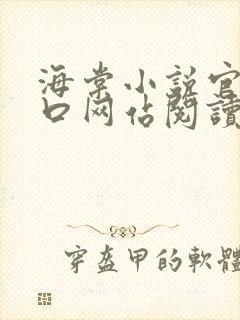 海棠小说官
口网站閱讀
穿盔甲的軟體